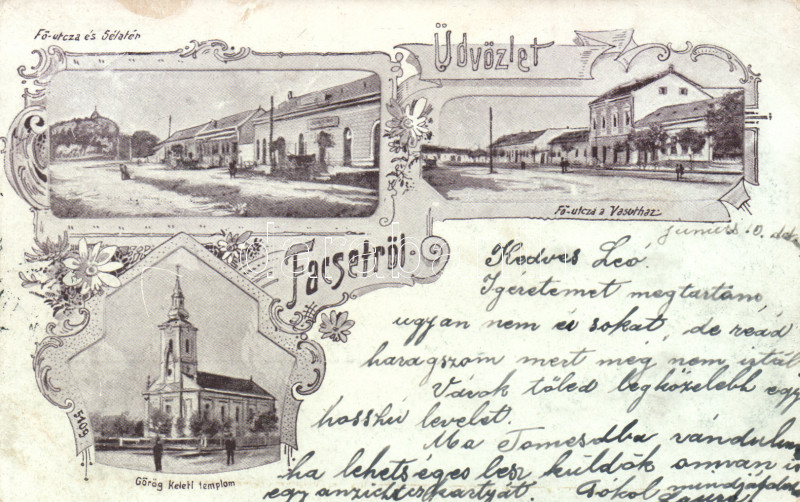 Fő-utcza és Sétatér
Üdvözlet
Fő-utcza a Vasúthaz
Facsetról.
5409
Görög Keleti templom
Junius 10.
Kedves Leó.
Igéretemet megtartom
ugyan nem ér sokat, de reád
haragszom mert még nem irtál
Várok tőled legközelebb egy
hosszú levelet.
Ma Tomesdba vándorlunk
ha lehetséges lesz küldök onnan is
egy anzichtskártyát. mindjátokat